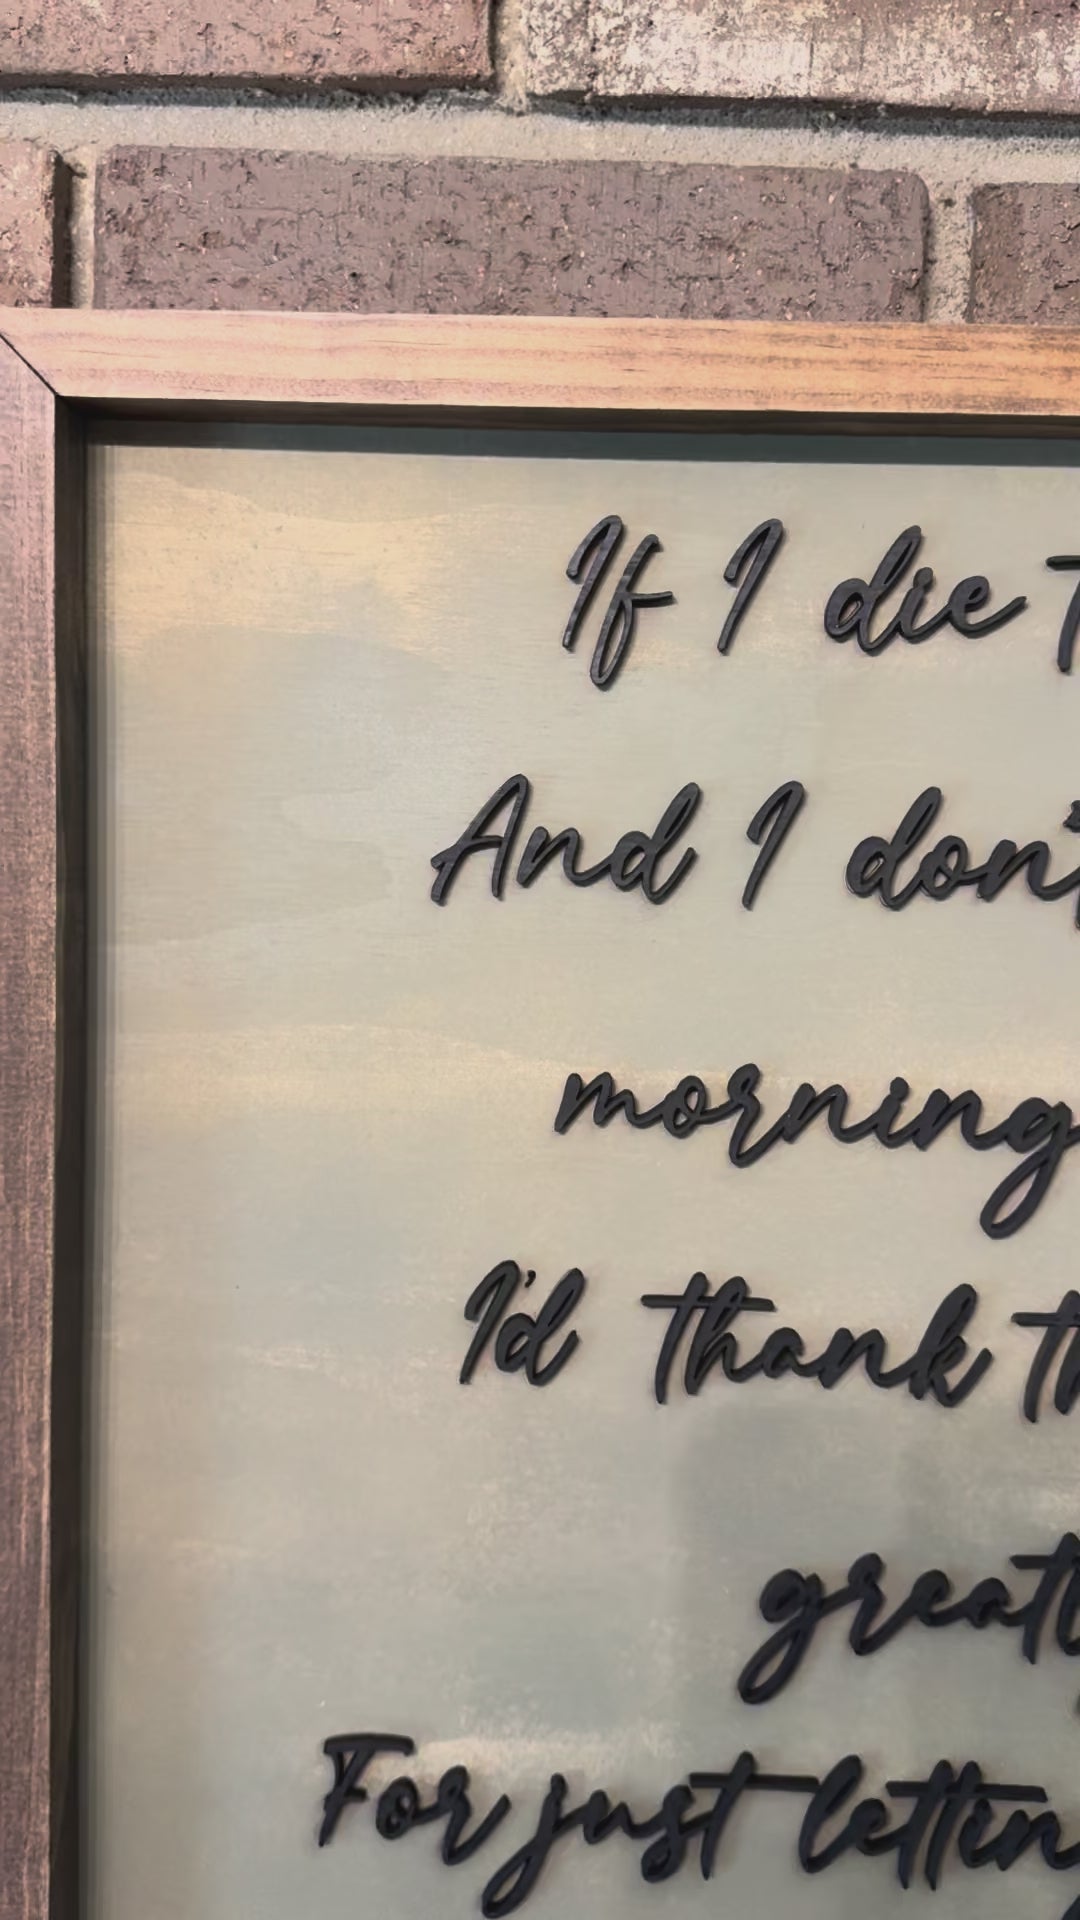 If I die
And I don't
morning
I'd thank
great
For just